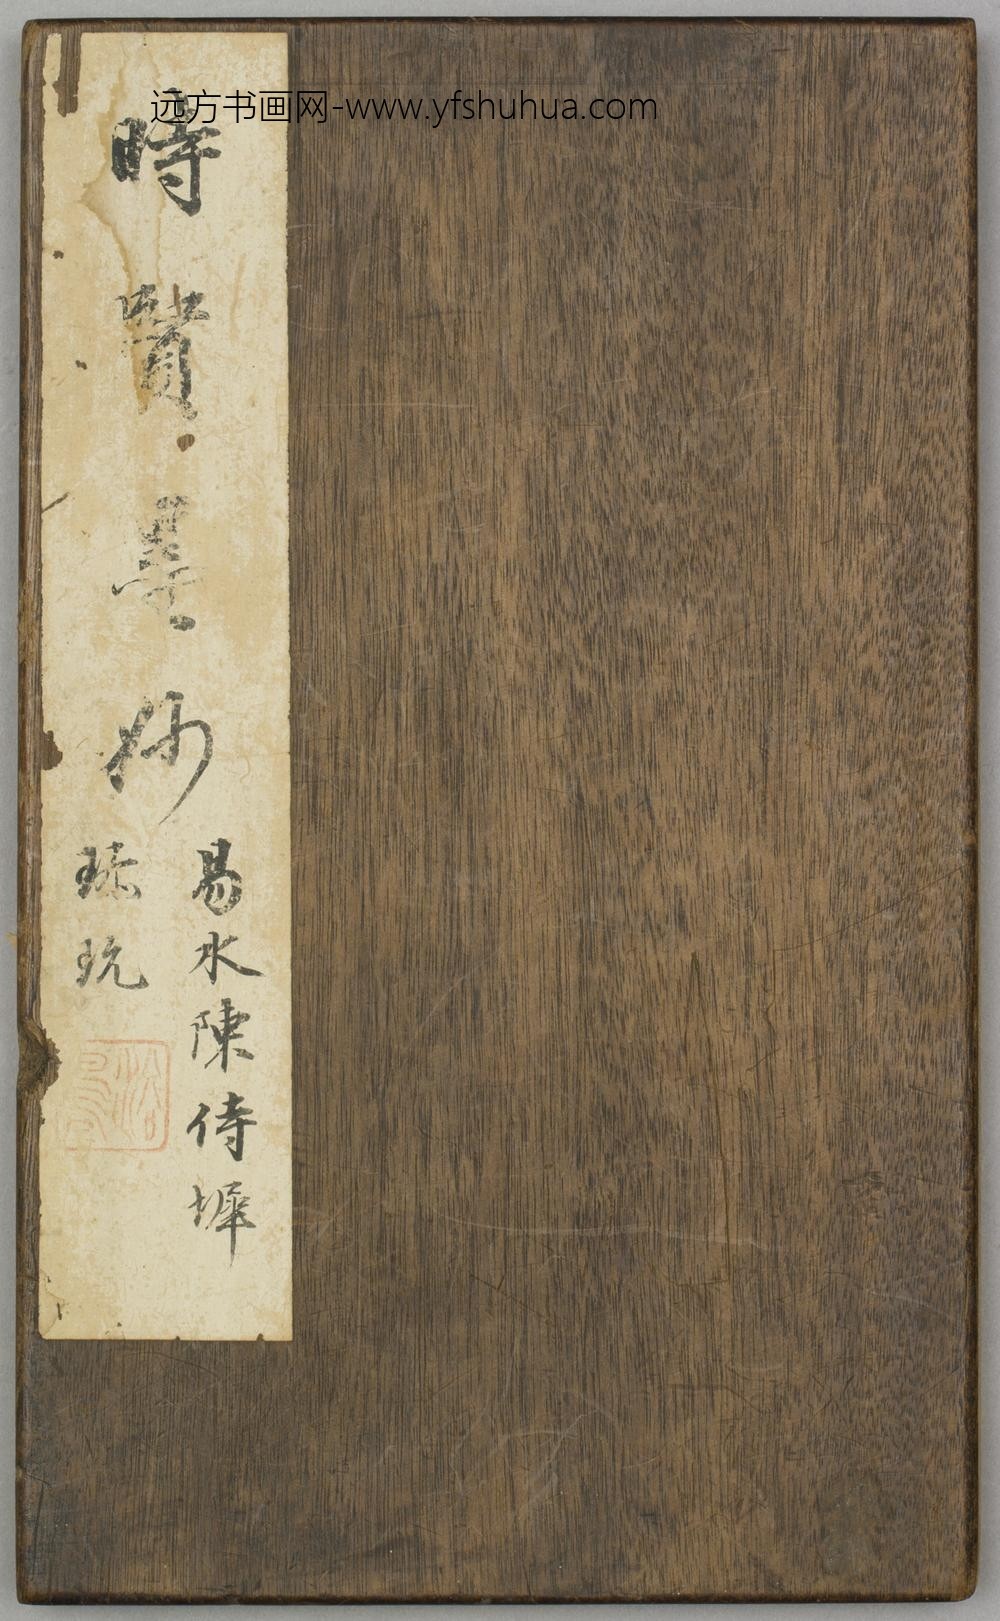 远方书画网-www.yfshuhua.com
時賢墨妙
易水陳侍墀
珍玩